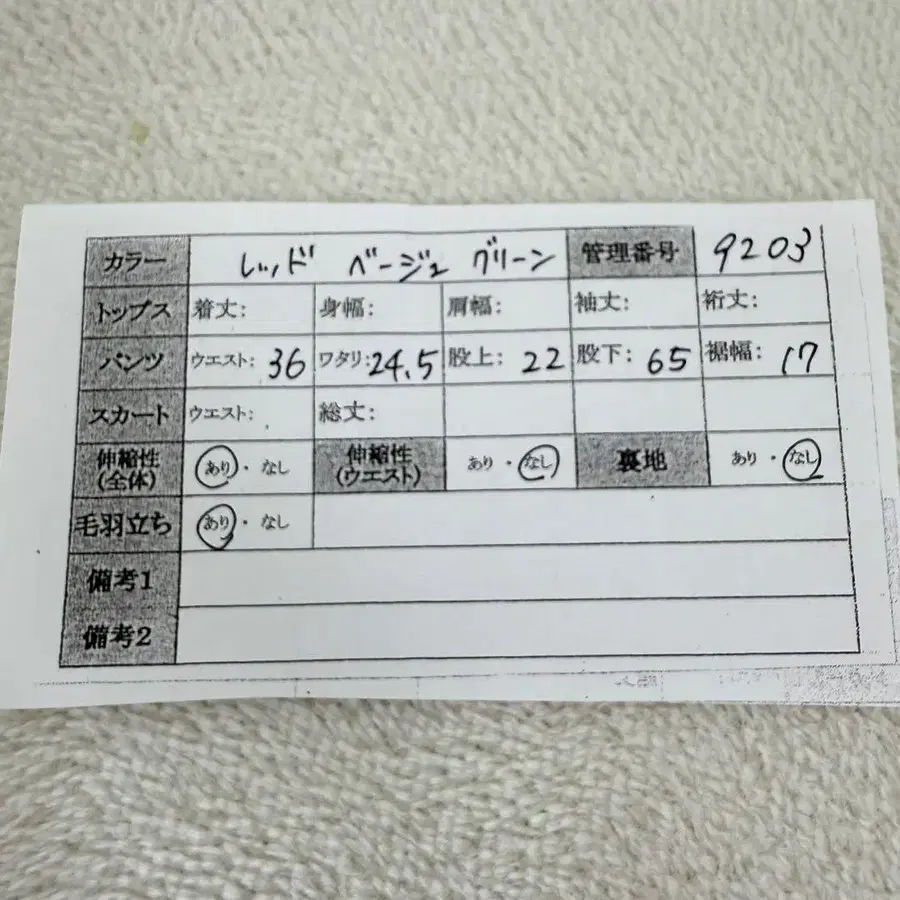 カラー レッド ベージュ グリーン 管理番号 9203
トップス 着丈: 身幅: 肩幅: 袖丈: 裄丈:
パンツ ウエスト: 36 ワタリ: 24.5 股上: 22 股下: 65 裾幅: 17
スカート ウエスト: 総丈:
伸縮性(全体) あり・なし 伸縮性(ウエスト) あり・なし 裏地 あり・なし
毛羽立ち あり・なし
備考1
備考2